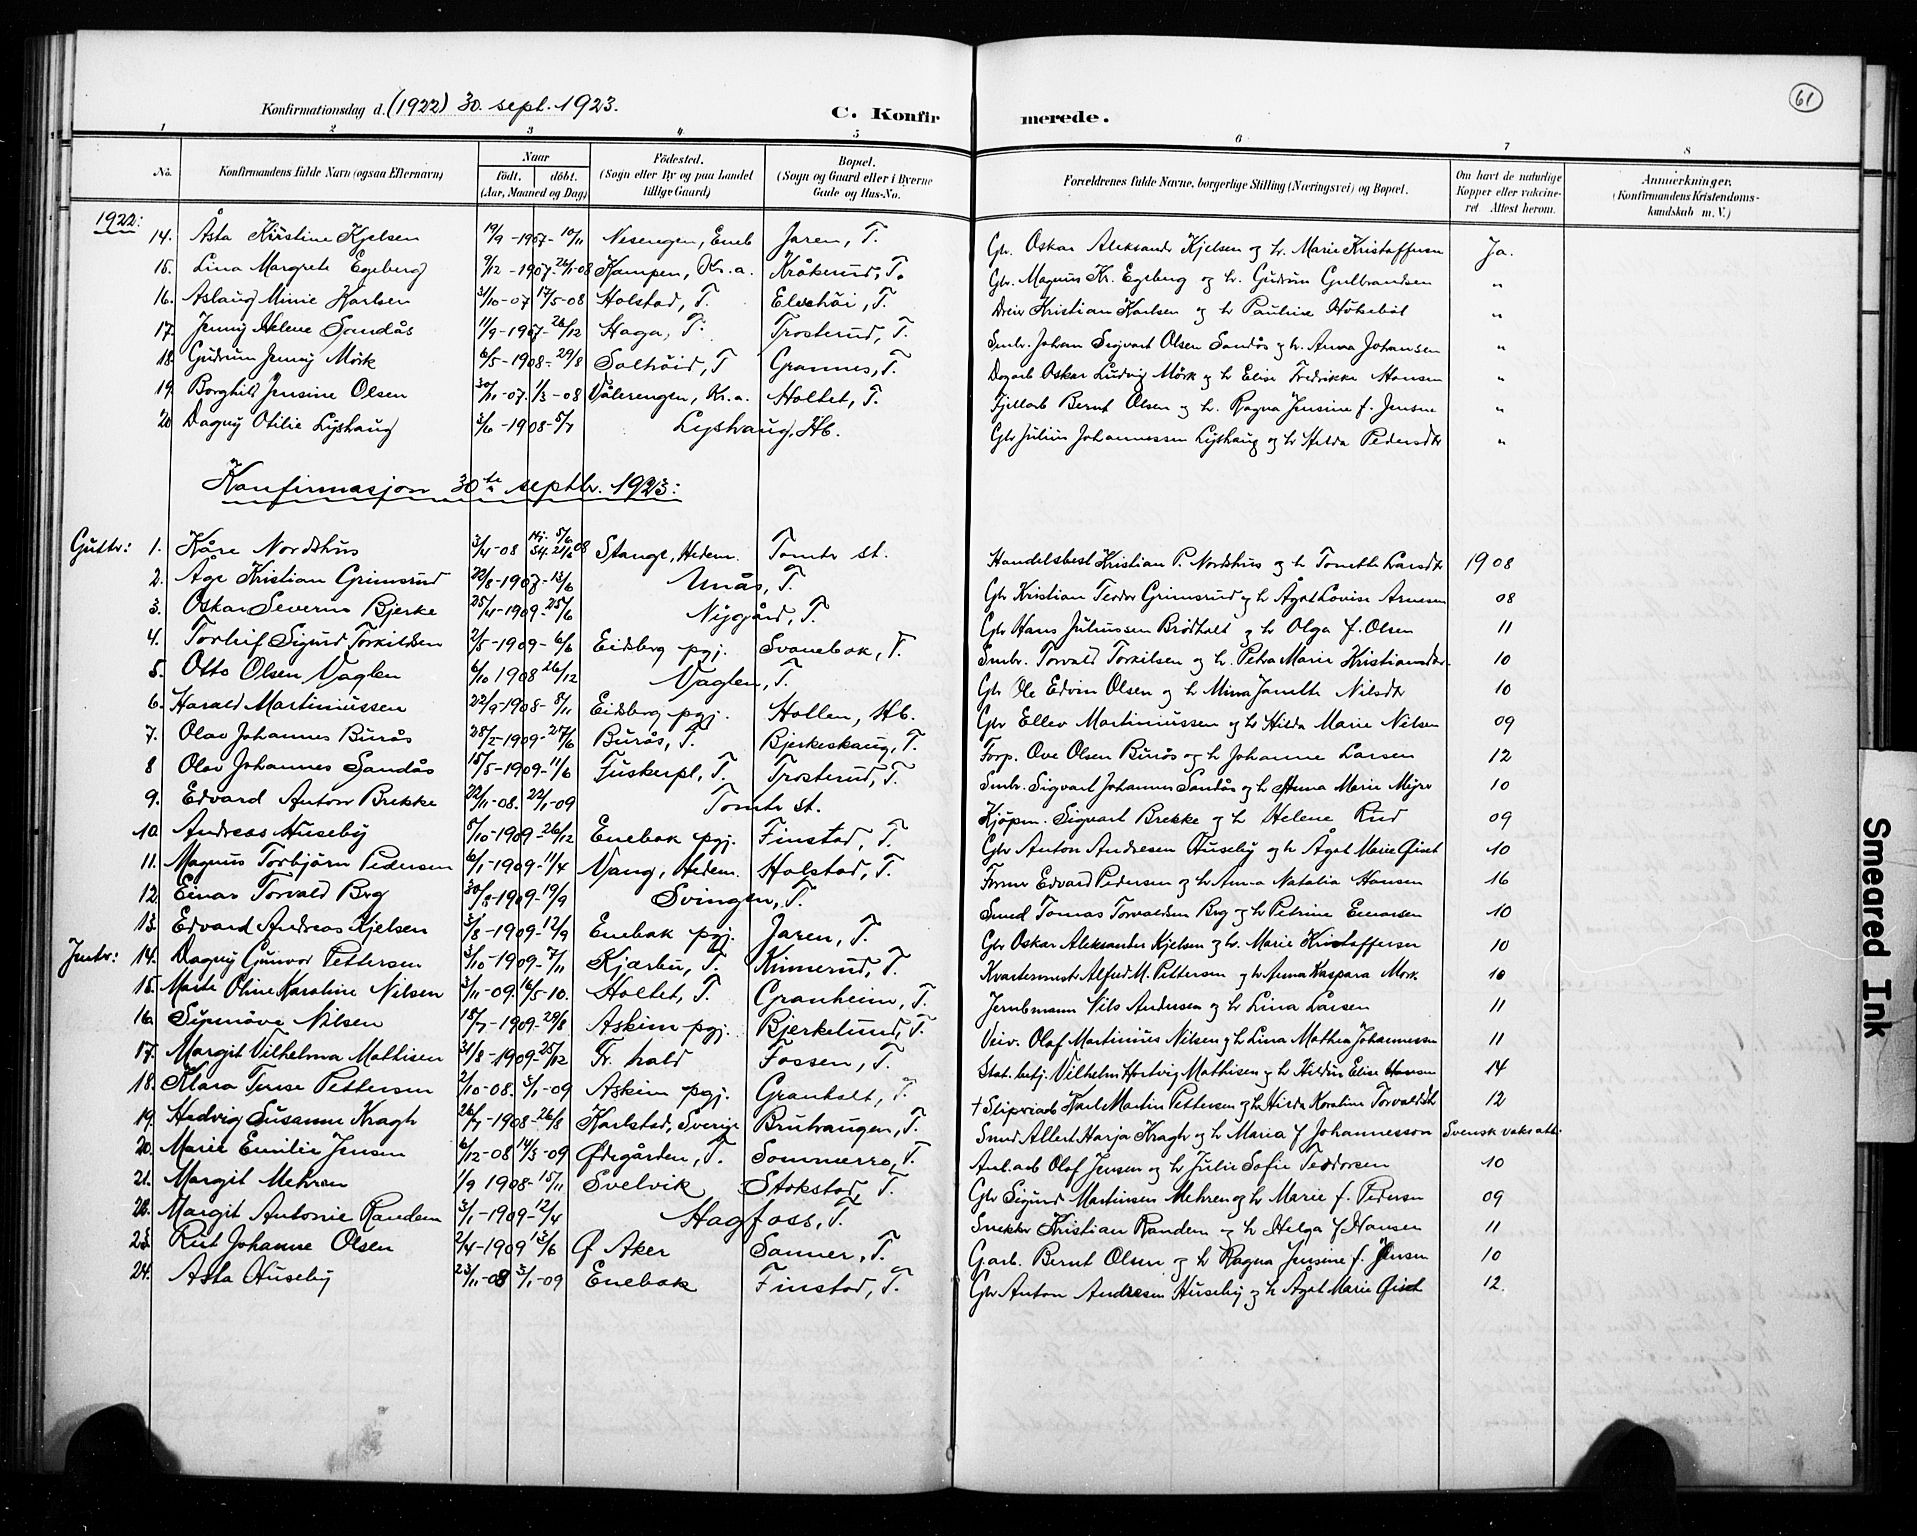 61
Konfirmationsdag d. (1922) 30. sept. 1923.
C. Konfirmerede.
1 2 3 4 5 6 7 8
No. Konfirmandens fulde Navn (ogsaa Efternavn) Naar født, døbt. (Aar, Maaned og Dag) Födested. (Sogn eller By og paa Landet tillige Gaard) Bopæl. (Sogn og Gaard eller i Byerne Gade og Hus-No. Forældrenes fulde Navne, borgerlige Stilling (Næringsvei) og Bopæl. Om havt de naturlige Kopper eller vaccineret Attest herom. Anmærkninger. (Konfirmandens Kristendomskundskab m. V.)
1922:
14. Åsta Kirstine Kjelsen 19/9 -1907- 10/11 Nesengen, Eneb Jaren, T. Gbr. Oskar Aleksander Kjelsen og h. Marie Kristoffersen Ja.
15. Lina Margrete Egeberg 9/12 -1907- 26/1-08 Kampen, Kr.a. Kråkerud, T. Gbr. Magnus Kr. Egeberg og h. Gudrun Gulbrandsen "
16. Aslaug Minie Karlsen 3/10-07 17/5-08 Holstad, T. Elvehöi, T. Dreier Kristian Karlsen og h Pauline "
17. Jenny Helene Sandås 11/9-1907- 26/12 Haga, T. Trosterud, T. Smbr. Johan Sigvart Olsen Sandås og h. Anna Johansen "
18. Gudrun Jenny Mörk 6/5-1908- 29/8 Solhöid, T Grannes, T. Dagarb Oskar Ludvig Mörk og h Elise Fredrikke Hansen "
19. Borghild Jensine Olsen 30/11-07. 1/3-08 Vålerengen, Kr.a. Holtet, T. Fjellarb Bernt Olsen og h. Ragna Jensine f. Jensen "
20 Dagny Otilie Lyshaug 3/6-1908- 5/7 Lyshaug, Hb. Gbr Julius Johannessen Lyshaug og h Hilda Pedersdtr "
Konfirmasjon 30te septbr. 1923:
Gutter: 1. Kåre Nordshus 3/4-08 Hj. 5/6 St. 21/6 08 Stange, Hedem. Tomter st. Handelsbest Kristian P. Nordshus og h Tonette Larsdtr 1908
2. Åge Kristian Grimsrud 22/8-1907- 13/6 Unås, T. Gbr Kristian Teodor Grimsrud og h Ågot Lovise Arnesen 08
3. Oskar Severin Bjerke 25/4-1909- 25/6 Nygård, T. Gbr Hans Juliussen Brödholt og h Olga f. Olsen 11
4. Torleif Sigurd Torkildsen 2/5-1909- 6/6 Eidsberg pgj. Svanebok, T. Smbr. Torvald Torkilsen og h. Petra Marie Kristiansdtr. 10
5. Otto Olsen Vaglen 6/10 1908 26/12 Vaglen, T. Gbr Ole Edvin Olsen og h Mina Janette Nilsdtr 10
6. Harald Martiniussen 22/9-1908- 8/11 Eidsberg pgj. Hollen, Hb. Gbr Ellev Martiniussen og h Hilda Marie Nilsen 09
7. Olav Johannes Burås 28/2-1909- 27/6 Burås, T. Bjerkeskaug, T. Forp. Ove Olsen Burås og h Johanne Larsen 12
8 Olav Johannes Sandås 15/5-1909- 11/6 Tuskerpl, T. Trosterud, T. Smbr. Sigvart Johannes Sandås og h Anna Marie Myre 10
9. Edvard Anton Brekke 22/11-08. 22/1-09 Tomter st. Kjöpm. Sigvart Brekke og h Helene Rud 09
10. Andreas Huseby 5/10-1909- 26/12 Enebak pgj. Finstad, T. Gbr Anton Andresen Huseby og h Ågot Marie Qiset 10
11. Magnus Torbjörn Pedersen 6/1-1909- 11/4 Vang, Hedem. Holstad, T. Former Edvard Pedersen og h Anna Natalia Hansen 16
12. Einar Torvald Berg 30/8-1909- 19/9 Svingen, T. Smed Tomas Torvaldsen Berg og h Petrine Einarsen 10
13. Edvard Andreas Kjelsen 3/8-1909- 12/9 Enebak pgj. Jaren, T. Gbr Oskar Aleksander Kjelsen og h. Marie Kristoffersen 10
Jenter: 14. Dagny Gunvor Pettersen 3/10-1909- 7/11 Kjærbu, T. Kinnerud, T. Kvartermest. Alfred M. Pettersen og h Anna Kaspara Mörk. 10
15. Marte Oline Karoline Nilsen 3/11-09. 16/5-10. Holtet, T. Granheim, T. Jernbmann Nils Andersen og h Lina Larsen 11
16. Synnöve Nilsen 15/7-1909- 29/8 Askim pgj. Bjerkelund, T. Veiv. Olaf Martinius Nilsen og h Lina Mathea Johannessen 11
17. Margit Vilhelma Mathisen 31/8-1909- 25/12 Fr. hald Fossen, T. Stat. betj. Vilhelm Hartvig Mathisen og h Hildur Elise Hansen 14
18. Klara Terese Pettersen 2/10-08. 3/1-09 Askim pgj. Granholt, T. † Sliperiarb Karl Martin Pettersen og h Hilda Karoline Torvaldsdtr 12
19. Hedvig Susanne Kragh 26/7-1908- 26/8 Karlstad, Sverige Bruhaugen, T. Smed Albert Harja Kragh og h Maria f Johannesson Svensk vaksatt.
20. Marie Emilie Jensen 6/12-08 14/3-09 Ødegården, T. Sommerro, T. Anl.arb Olaf Jensen og h Julie Sofie Teodorsen 10
21. Margit Mehren 1/9 1908- 15/11 Svelvik Stokstad, T. Gbr Sigurd Martinsen Mehren og h Marie f. Pedersen 09
22. Margit Antonie Randem 3/1-1909- 12/4 Hagfoss, T. Snekker Kristian Randem og h Helga f Hansen 11
23. Rut Johanne Olsen 2/4-1909 13/6 Ø Aker Sanner, T. Garb. Bernt Olsen og h Ragna Jensine f. Jensen 10
24. Asta Huseby 23/11-08 3/1-09 Enebak Finstad, T. Gbr Anton Andresen Huseby og h Ågot Marie Qiset 12.
Smeared Ink